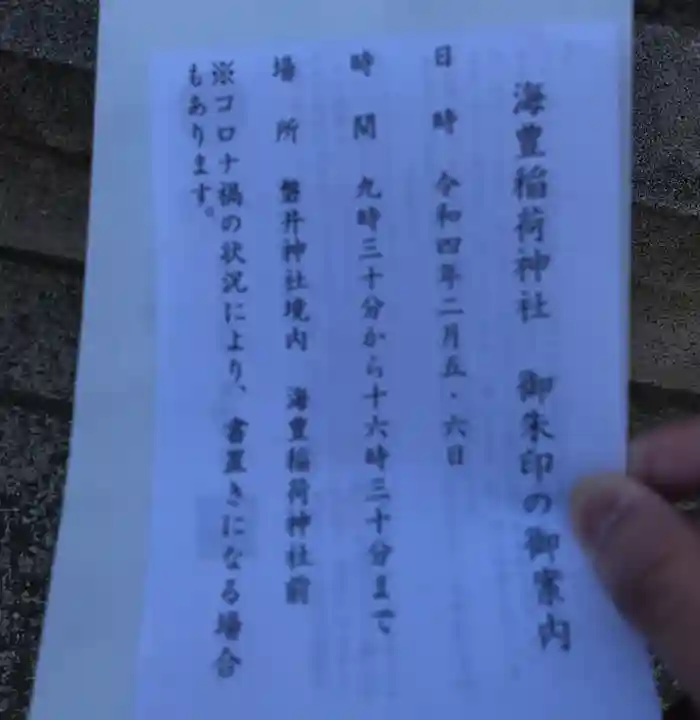 海豊稲荷神社 御朱印の御案内
日 時 令和四年二月五・六日
時 間 九時三十分から十六時三十分まで
場 所 磐井神社境内 海豊稲荷神社前
※コロナ禍の状況により、書置きになる場合
もあります。